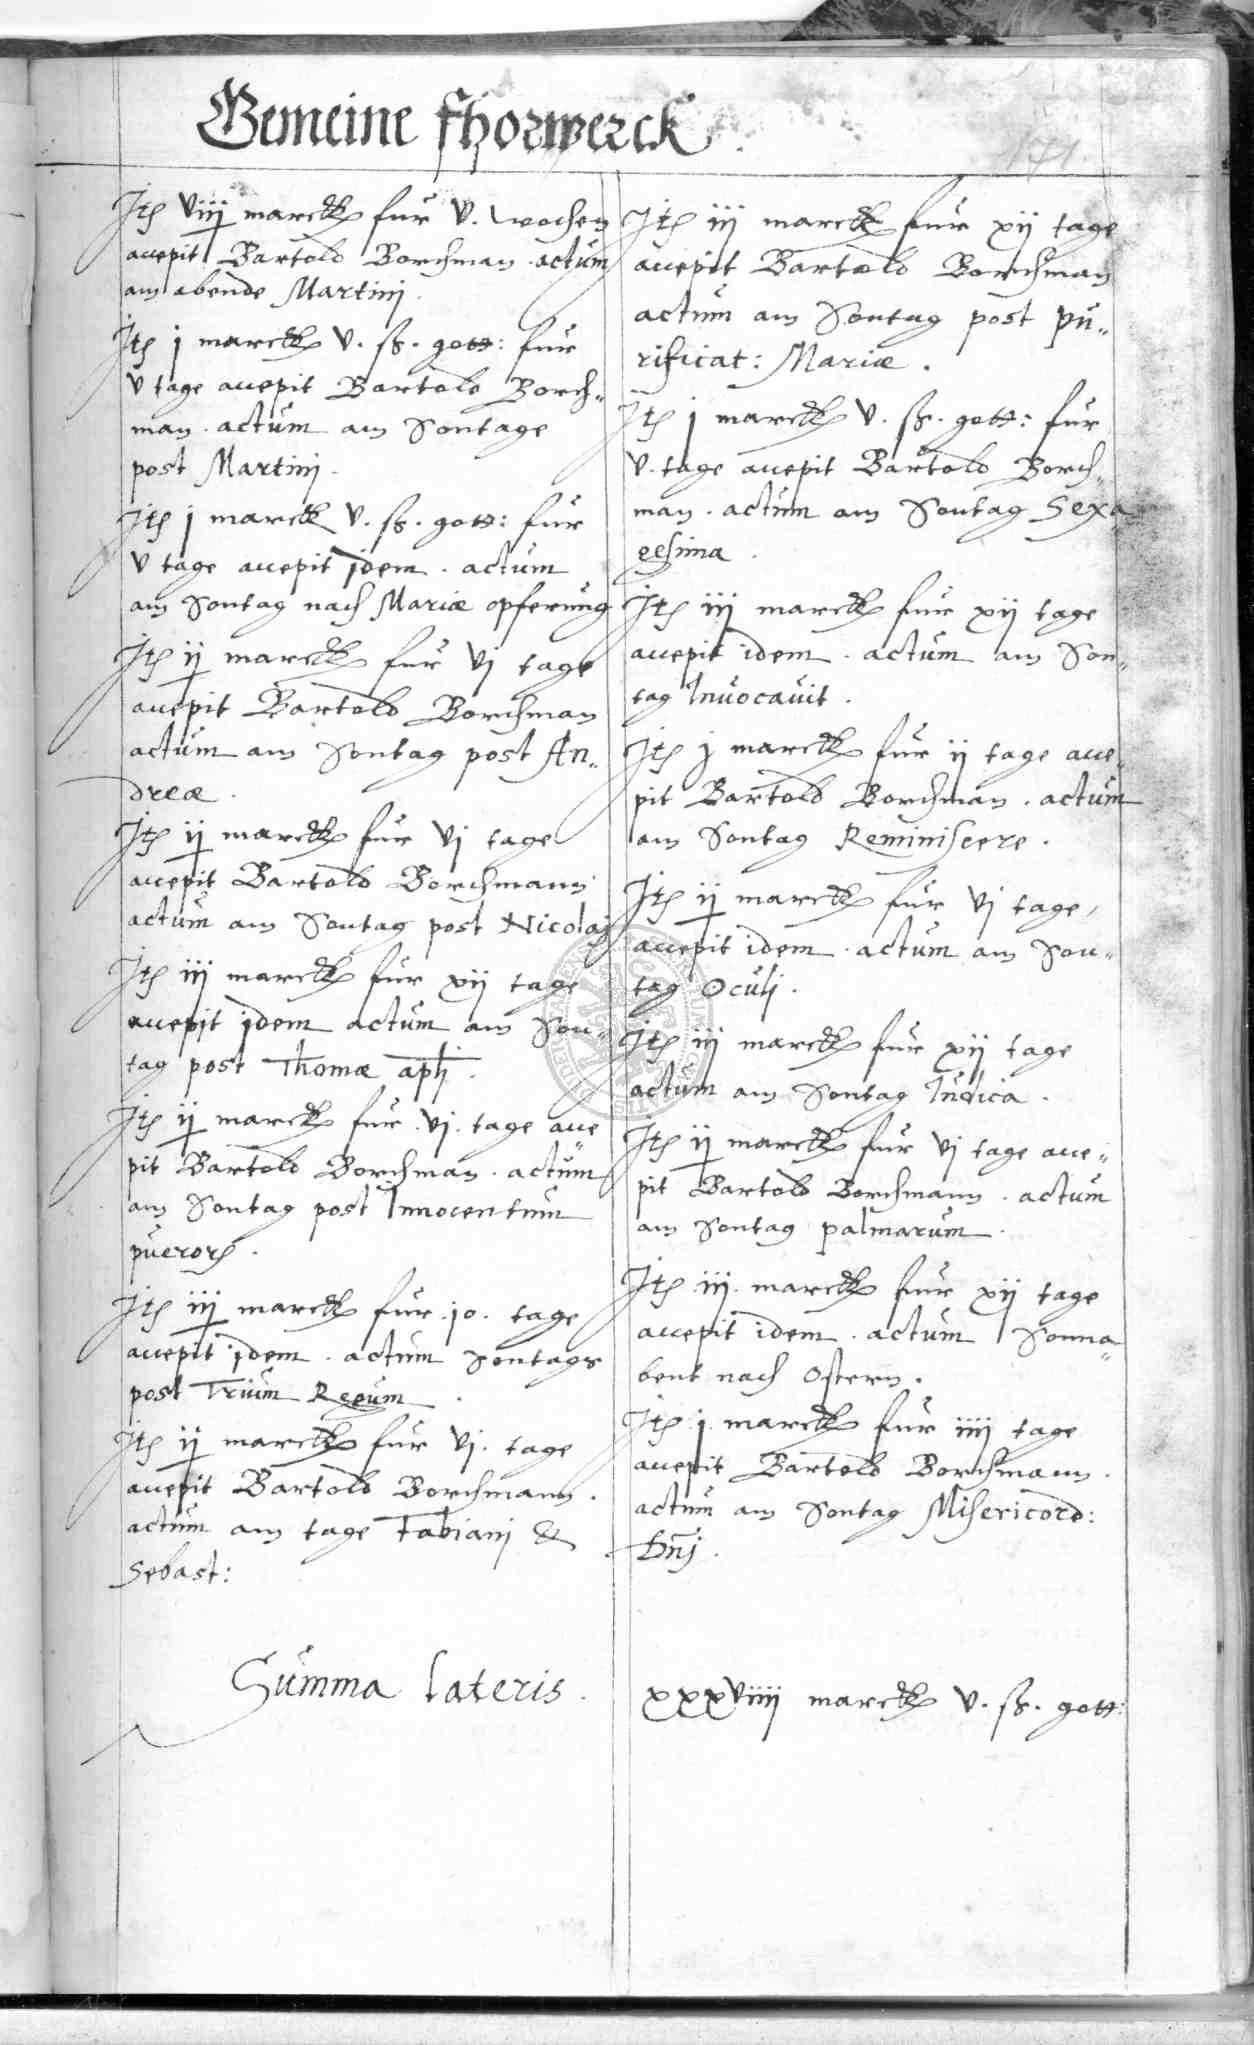 Gemeine fhorwerck
171
Itē viij marck fur v. wochen
accepit Bartold Borchman actum
am abende Martinj.
Itē j marck v. ß. gott: fur
v tage accepit Bartold Borch„
man. actum am Sontage
post Martinj.
Itē j marck v. ß. gott: fur
v tage accepit idem. actum
am Sontag nach Mariæ opferung
Itē ij marck fur vj tage
accepit Bartold Borchman
actum am Sontag post An„
dreæ.
Itē ij marck fur vj tage
accepit Bartold Borchmann
actum am Sontag post Nicolaj
Itē iij marck fur xij tage
accepit idem actum am Son„
tag post Thomæ apli.
Itē ij marck fur .vj. tage acce„
pit Bartold Borchman. actum
am Sontag post Innocentum
puerorū.
Itē iij marck fur .10. tage
accepit idem. actum Sontags
post Trium Regum.
Itē ij marck fur vj. tage
accepit Bartold Borchmann.
actum am tage Fabianj &
Sebast:
Itē iij marck fur xij tage
accepit Bartold Borchman
actum am Sontag post pu„
rificat: Mariæ.
Itē j marck v. ß. gott: fur
v. tage accepit Bartold Borch„
man. actum am Sontag Sexa
gesima.
Itē iij marck fur xij tage
accepit idem. actum am Son„
tag Invocavit.
Itē j marck fur ij tage acce„
pit Bartold Borchman. actum
am Sontag Reminiscere.
Itē ij marck fur vj tage,
accepit idem. actum am Son„
tag Oculj.
Itē iij marck fur xij tage
actum am Sontag Iudica.
Itē ij marck fur vj tage acce„
pit Bartold Borchmann. actum
am Sontag palmarum.
Itē iij. marck fur xij tage
accepit idem. actum Sonna„
bent nach Ostern.
Itē j marck fur iiij tage
accepit Bartold Borchmann.
actum am Sontag Misericord:
Dnj.
Summa lateris.
xxxviiij marck v. ß. gott: